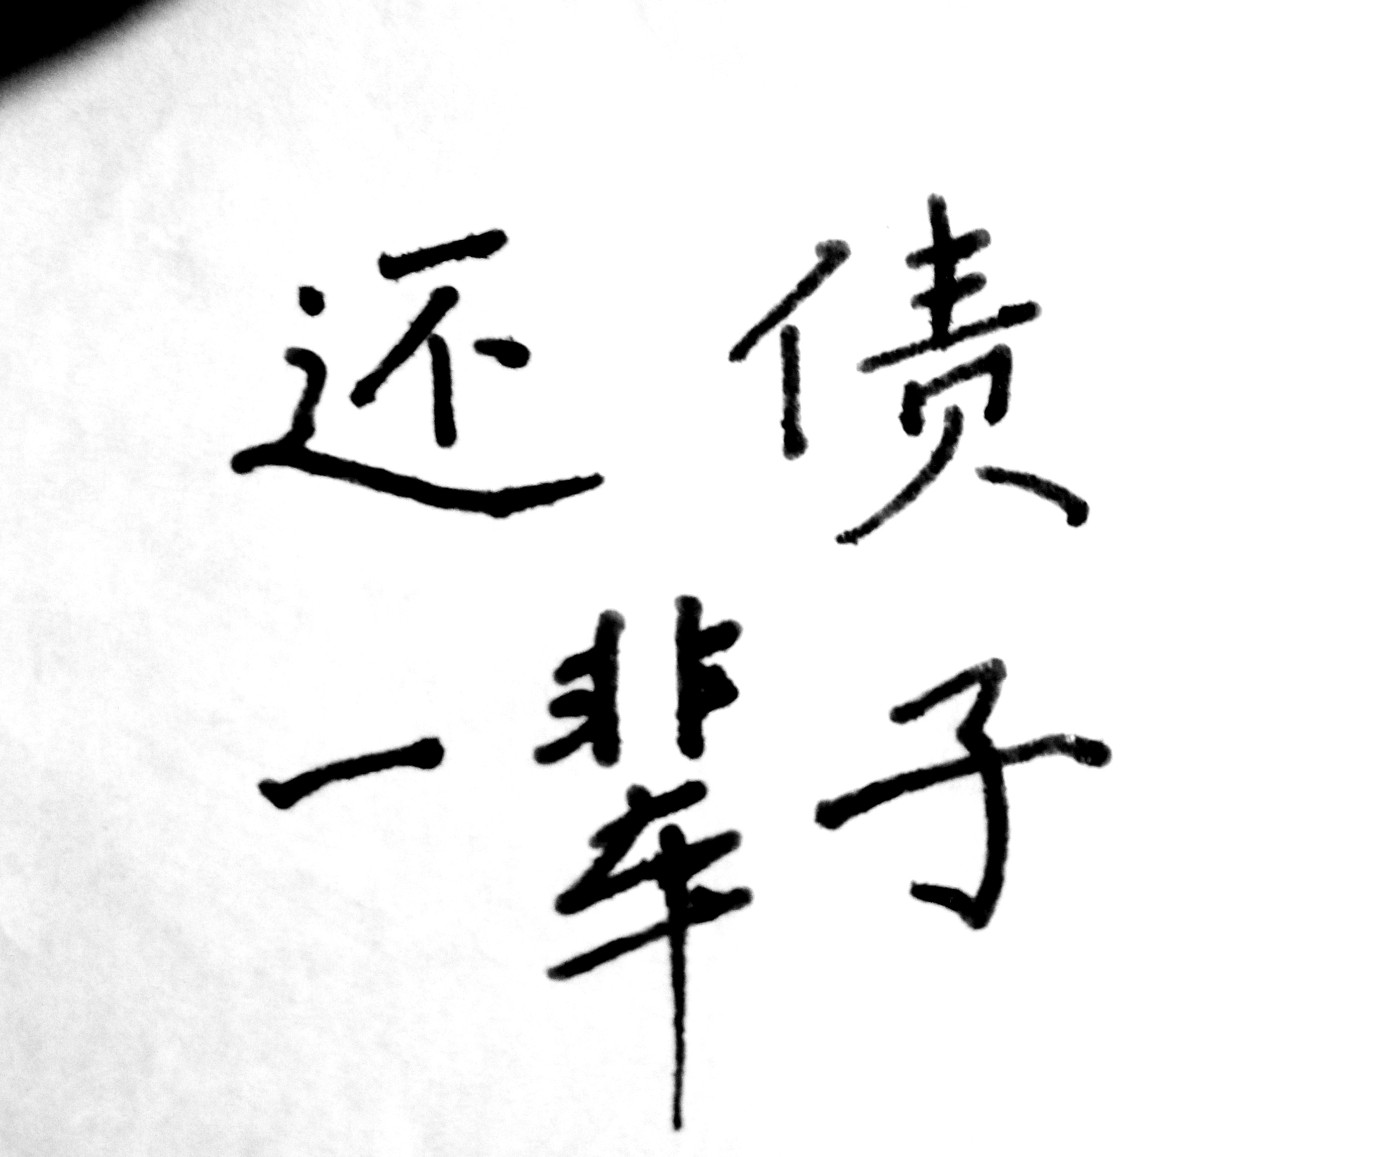 还债
一辈子